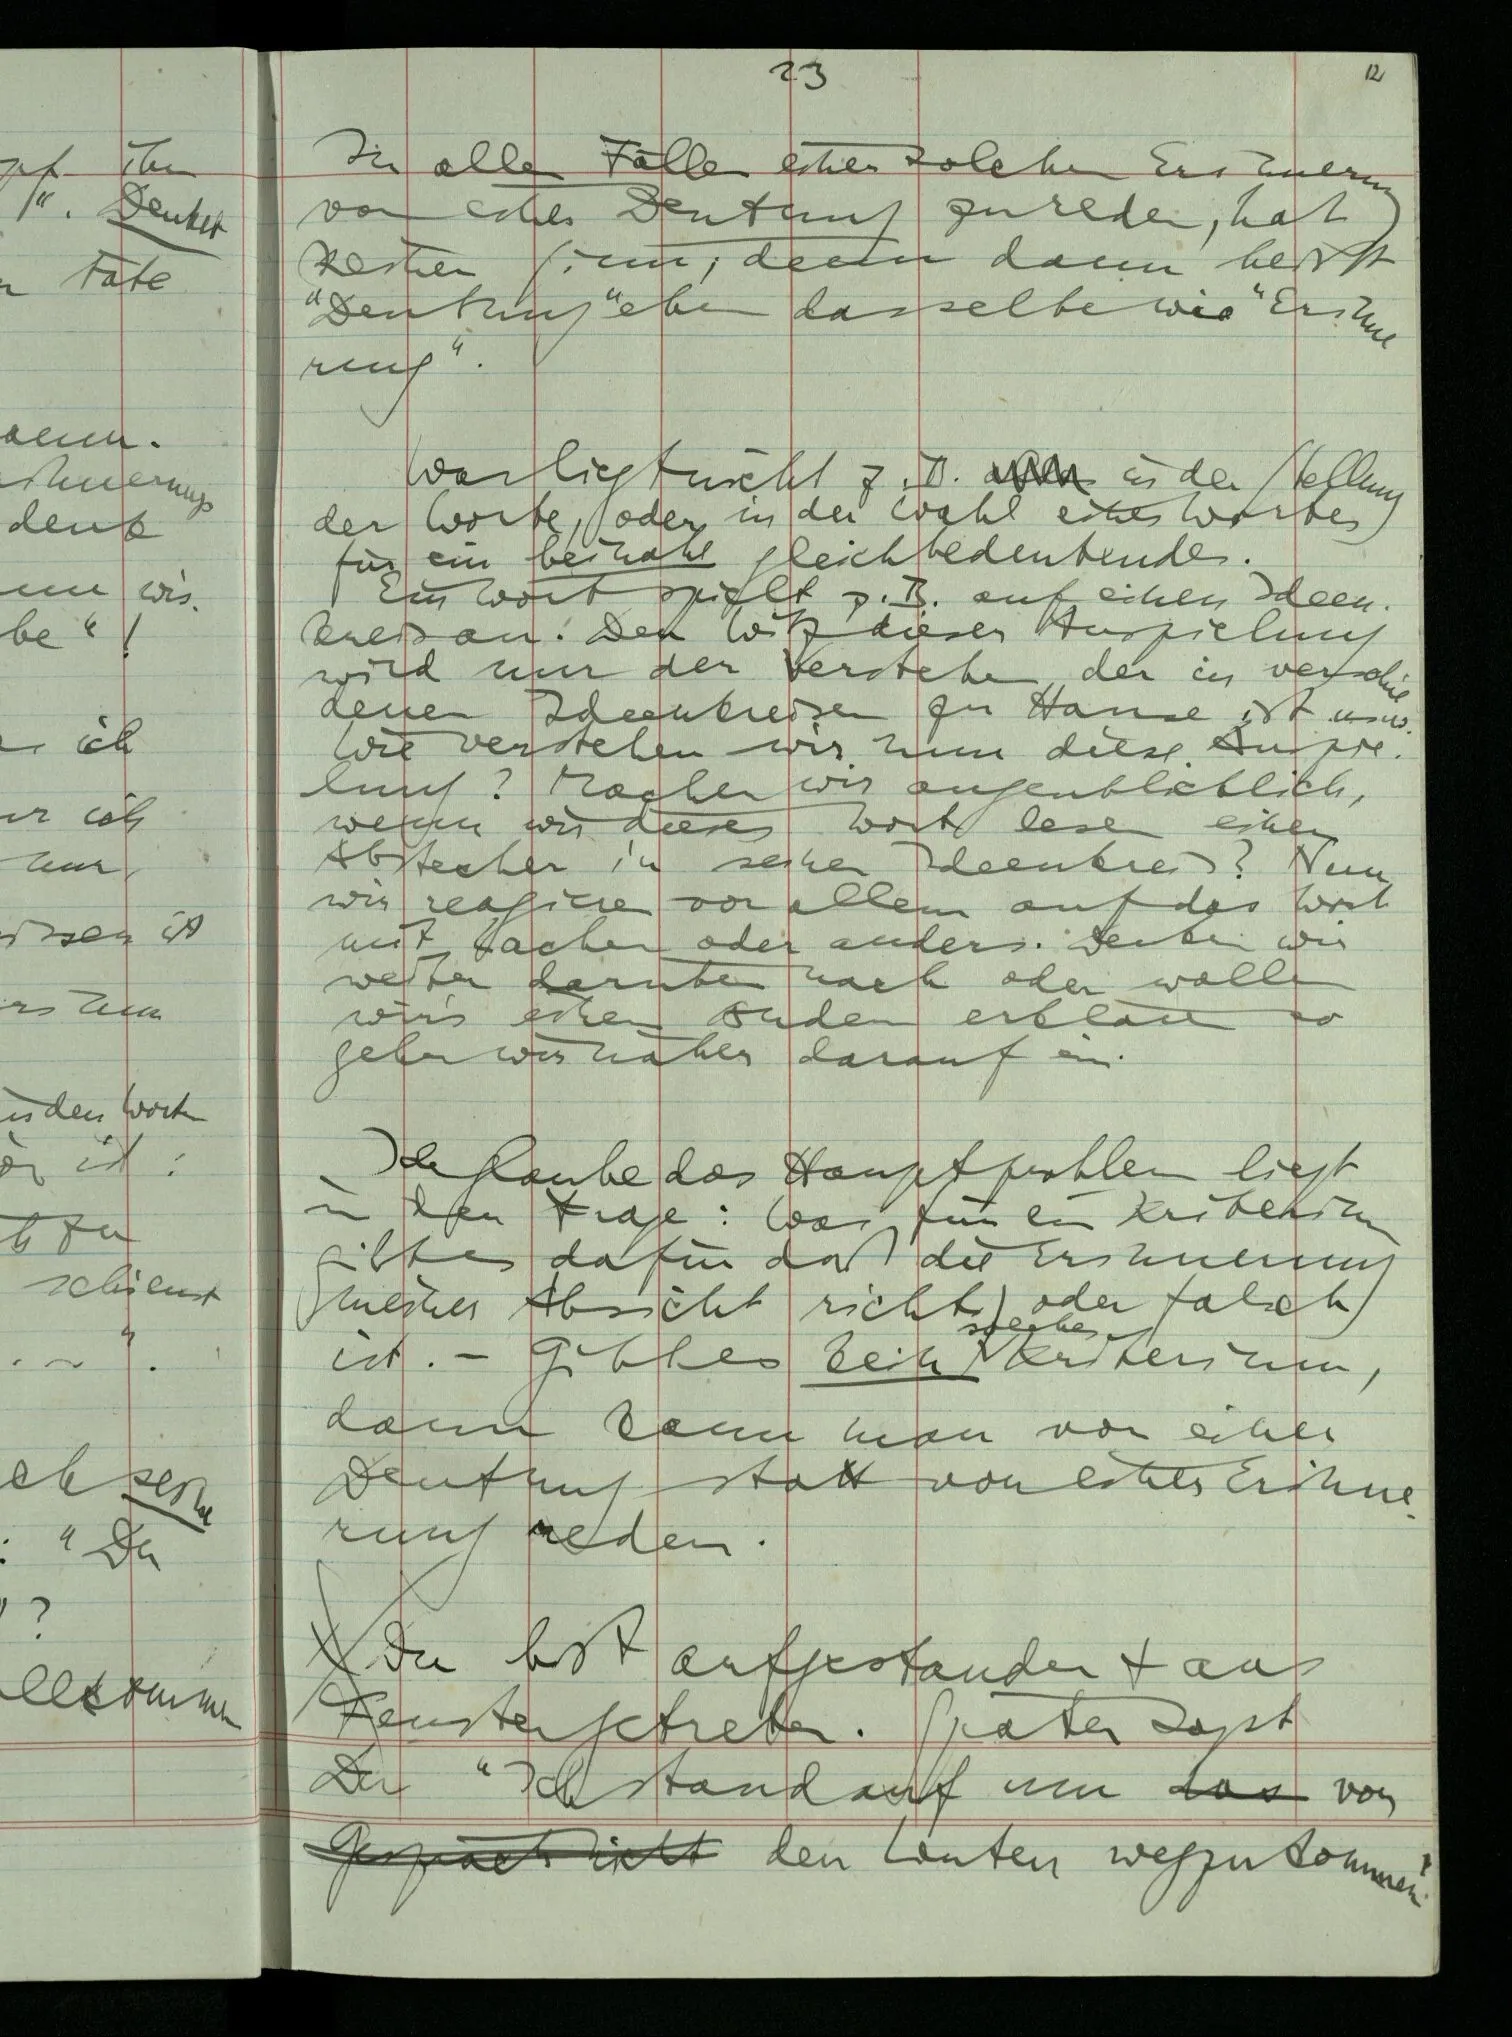 pf ihm
“. Denket
n täte
dann.
innerungs
denk
nn wir.
be“!
ich
ur ich
nur
issen ist
in den Worten
ör ist:
schienst
“.
ch seine
: “Du
“?
ollkommen
23
12
In allen Fällen einer solchen Erinnerung
von einer Deutung zu reden, hat
keinen Sinn; denn dann heisst
“Deutung“ eben dasselbe wie “Erinne
rung“.
Was liegt nicht z.B. in der Stellung
der Worte, oder in der Wahl eines Wortes
für ein beinahe gleichbedeutendes.
Ein Wort spielt z.B. auf einen Ideen-
kreis an. Den Witz dieser Anspielung
wird nur der Verstehen der in verschie
denen Ideenkreisen zu Hause ist usw.
Wie verstehen wir nun diese Anspie-
lung? Machen wir augenblicklich,
wenn wir dieses Wort lesen einen
Abstecher in seinen Ideenkreis? Nun
wir reagieren vor allem auf das Wort
mit Lachen oder anders. Denken wir
weiter darüber nach oder wollen
wir's einem Andern erklären so
gehen wir näher darauf ein.
Ich glaube das Hauptproblem liegt
in der Frage: Was für ein Kriterium
gibt es dafür daß die Erinnerung
meiner Absicht richtig oder falsch
ist. – Gibt es kein solches Kriterium,
dann kann man von einer
Deutung statt von einer Erinne-
rung reden.
Du bist aufgestanden + ans
Fenster getreten. Später sagst
Du “Ich stand auf um das von
Gespräch nicht den Leuten wegzukommen“.